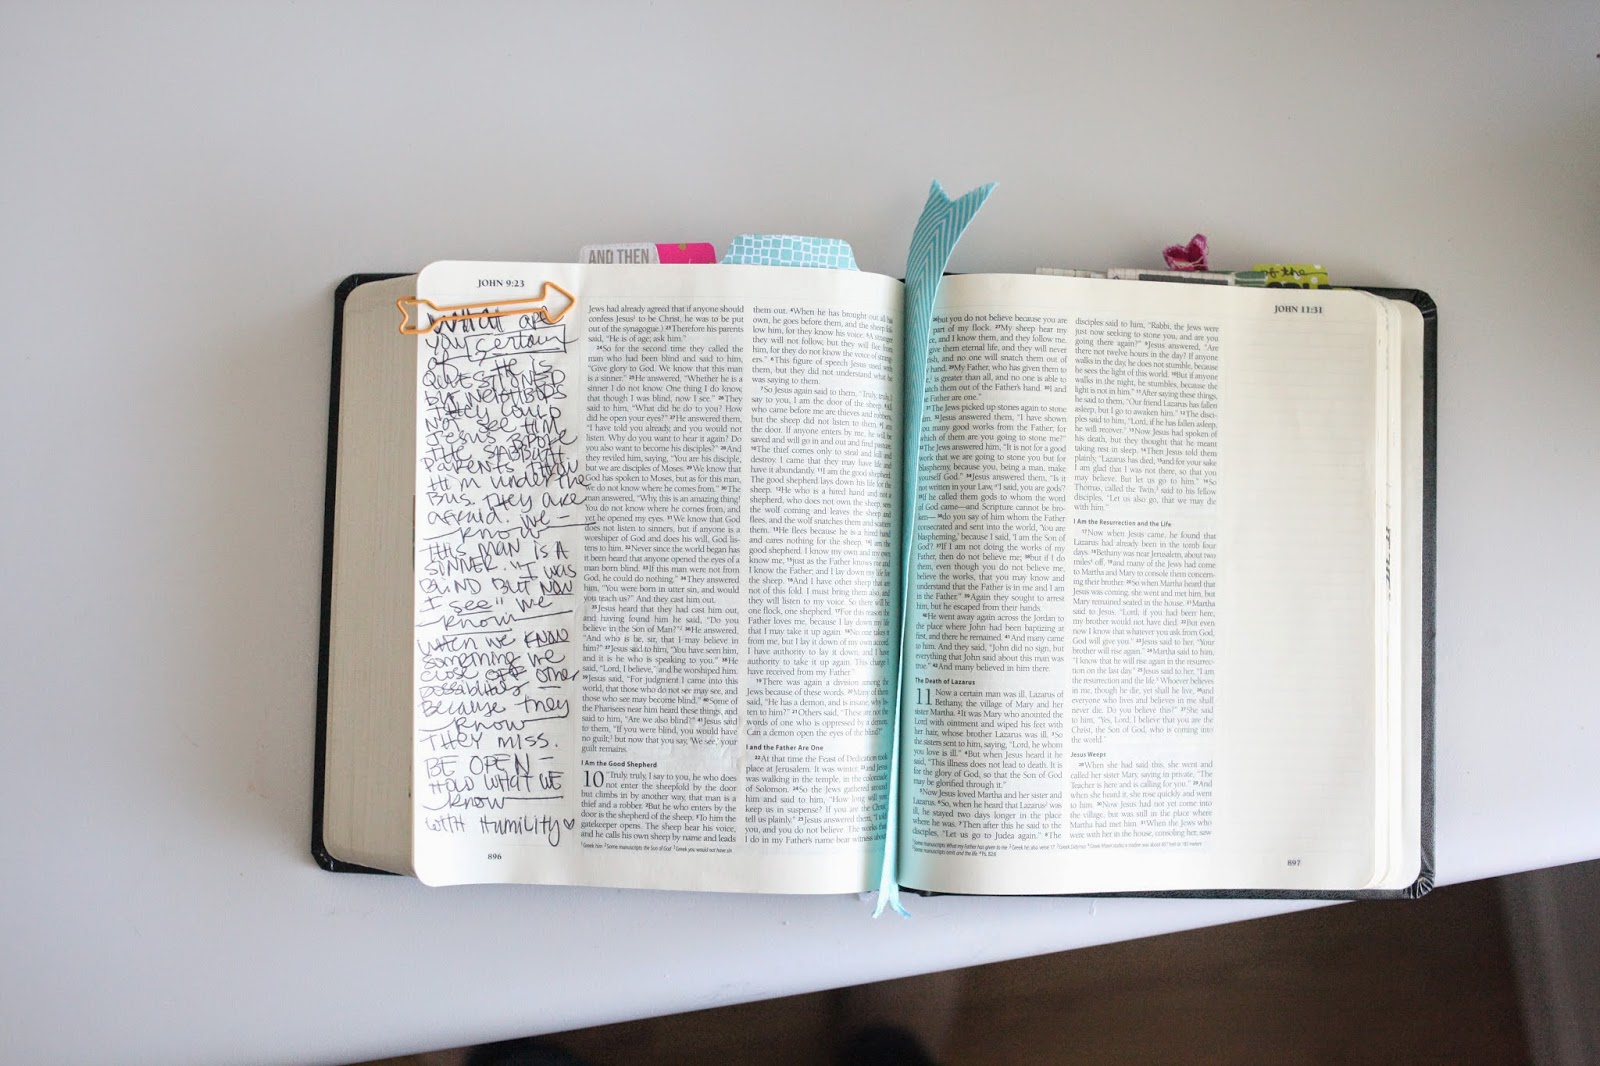 AND THEN
of the
JOHN 9:23
What are
you Certain
of? He is
QUESTIONED
by NEIGHBORS
They could
Not see Him
Jesus Broke
THE SABBATH
Parents throw
Him under the
Bus. They are
afraid. we -
know
THIS MAN IS A
SINNER. "I was
BLIND BUT NOW
I see" we
know
When we know
something we
close off other
possibilitys -
Because they
know
They miss.
BE OPEN -
HOLD WHAT WE
know
WITH HUMILITY♡
Jews had already agreed that if anyone should
confess Jesus¹ to be Christ, he was to be put
out of the synagogue.) 23 Therefore his parents
said, "He is of age; ask him."
24 So for the second time they called the
man who had been blind and said to him,
"Give glory to God. We know that this man
is a sinner." 25 He answered, "Whether he is a
sinner I do not know. One thing I do know,
that though I was blind, now I see." 26 They
said to him, "What did he do to you? How
did he open your eyes?" 27 He answered them,
"I have told you already, and you would not
listen. Why do you want to hear it again? Do
you also want to become his disciples?" 28 And
they reviled him, saying, "You are his disciple,
but we are disciples of Moses. 29 We know that
God has spoken to Moses, but as for this man,
we do not know where he comes from." 30 The
man answered, "Why, this is an amazing thing!
You do not know where he comes from, and
yet he opened my eyes. 31 We know that God
does not listen to sinners, but if anyone is a
worshiper of God and does his will, God lis-
tens to him. 32 Never since the world began has
it been heard that anyone opened the eyes of a
man born blind. 33 If this man were not from
God, he could do nothing." 34 They answered
him, "You were born in utter sin, and would
you teach us?" And they cast him out.
35 Jesus heard that they had cast him out,
and having found him he said, "Do you
believe in the Son of Man?"² 36 He answered,
"And who is he, sir, that I may believe in
him?" 37 Jesus said to him, "You have seen him,
and it is he who is speaking to you." 38 He
said, "Lord, I believe," and he worshiped him.
39 Jesus said, "For judgment I came into this
world, that those who do not see may see, and
those who see may become blind." 40 Some of
the Pharisees near him heard these things, and
said to him, "Are we also blind?" 41 Jesus said
to them, "If you were blind, you would have
no guilt;³ but now that you say, 'We see,' your
guilt remains.
I Am the Good Shepherd
10 "Truly, truly, I say to you, he who does
not enter the sheepfold by the door
but climbs in by another way, that man is a
thief and a robber. 2 But he who enters by the
door is the shepherd of the sheep. 3 To him the
gatekeeper opens. The sheep hear his voice,
and he calls his own sheep by name and leads
them out. 4 When he has brought out all his
own, he goes before them, and the sheep fol-
low him, for they know his voice. 5 A stranger
they will not follow, but they will flee from
him, for they do not know the voice of strang-
ers." 6 This figure of speech Jesus used with
them, but they did not understand what he
was saying to them.
7 So Jesus again said to them, "Truly, truly, I
say to you, I am the door of the sheep. 8 All
who came before me are thieves and robbers,
but the sheep did not listen to them. 9 I am
the door. If anyone enters by me, he will be
saved and will go in and out and find pasture.
10 The thief comes only to steal and kill and
destroy. I came that they may have life and
have it abundantly. 11 I am the good shepherd.
The good shepherd lays down his life for the
sheep. 12 He who is a hired hand and not a
shepherd, who does not own the sheep, sees
the wolf coming and leaves the sheep and
flees, and the wolf snatches them and scatters
them. 13 He flees because he is a hired hand
and cares nothing for the sheep. 14 I am the
good shepherd. I know my own and my own
know me, 15 just as the Father knows me and
I know the Father; and I lay down my life for
the sheep. 16 And I have other sheep that are
not of this fold. I must bring them also, and
they will listen to my voice. So there will be
one flock, one shepherd. 17 For this reason the
Father loves me, because I lay down my life
that I may take it up again. 18 No one takes it
from me, but I lay it down of my own accord.
I have authority to lay it down, and I have
authority to take it up again. This charge I
have received from my Father."
19 There was again a division among the
Jews because of these words. 20 Many of them
said, "He has a demon, and is insane; why lis-
ten to him?" 21 Others said, "These are not the
words of one who is oppressed by a demon.
Can a demon open the eyes of the blind?"
I and the Father Are One
22 At that time the Feast of Dedication took
place at Jerusalem. It was winter, 23 and Jesus
was walking in the temple, in the colonnade
of Solomon. 24 So the Jews gathered around
him and said to him, "How long will you
keep us in suspense? If you are the Christ,
tell us plainly." 25 Jesus answered them, "I told
you, and you do not believe. The works that
I do in my Father's name bear witness about
¹ Greek him ² Some manuscripts the Son of God ³ Greek you would not have sin
896
JOHN 11:31
26 but you do not believe because you are
part of my flock. 27 My sheep hear my
and I know them, and they follow me.
give them eternal life, and they will never
and no one will snatch them out of
hand. 29 My Father, who has given them to
is greater than all, and no one is able to
them out of the Father's hand. 30 I and
Father are one."
31 The Jews picked up stones again to stone
him. 32 Jesus answered them, "I have shown
you many good works from the Father; for
which of them are you going to stone me?"
33 The Jews answered him, "It is not for a good
work that we are going to stone you but for
blasphemy, because you, being a man, make
yourself God." 34 Jesus answered them, "Is it
not written in your Law, 'I said, you are gods'?
35 If he called them gods to whom the word
of God came—and Scripture cannot be bro-
ken— 36 do you say of him whom the Father
consecrated and sent into the world, 'You are
blaspheming,' because I said, 'I am the Son of
God'? 37 If I am not doing the works of my
Father, then do not believe me; 38 but if I do
them, even though you do not believe me,
believe the works, that you may know and
understand that the Father is in me and I am
in the Father." 39 Again they sought to arrest
him, but he escaped from their hands.
40 He went away again across the Jordan to
the place where John had been baptizing at
first, and there he remained. 41 And many came
to him. And they said, "John did no sign, but
everything that John said about this man was
true." 42 And many believed in him there.
The Death of Lazarus
11 Now a certain man was ill, Lazarus of
Bethany, the village of Mary and her
sister Martha. 2 It was Mary who anointed the
Lord with ointment and wiped his feet with
her hair, whose brother Lazarus was ill. 3 So
the sisters sent to him, saying, "Lord, he whom
you love is ill." 4 But when Jesus heard it he
said, "This illness does not lead to death. It is
for the glory of God, so that the Son of God
may be glorified through it."
5 Now Jesus loved Martha and her sister and
Lazarus. 6 So, when he heard that Lazarus² was
ill, he stayed two days longer in the place
where he was. 7 Then after this he said to the
disciples, "Let us go to Judea again." 8 The
disciples said to him, "Rabbi, the Jews were
just now seeking to stone you, and are you
going there again?" 9 Jesus answered, "Are
there not twelve hours in the day? If anyone
walks in the day, he does not stumble, because
he sees the light of this world. 10 But if anyone
walks in the night, he stumbles, because the
light is not in him." 11 After saying these things,
he said to them, "Our friend Lazarus has fallen
asleep, but I go to awaken him." 12 The disci-
ples said to him, "Lord, if he has fallen asleep,
he will recover." 13 Now Jesus had spoken of
his death, but they thought that he meant
taking rest in sleep. 14 Then Jesus told them
plainly, "Lazarus has died, 15 and for your sake
I am glad that I was not there, so that you
may believe. But let us go to him." 16 So
Thomas, called the Twin,³ said to his fellow
disciples, "Let us also go, that we may die
with him."
I Am the Resurrection and the Life
17 Now when Jesus came, he found that
Lazarus had already been in the tomb four
days. 18 Bethany was near Jerusalem, about two
miles⁴ off, 19 and many of the Jews had come
to Martha and Mary to console them concern-
ing their brother. 20 So when Martha heard that
Jesus was coming, she went and met him, but
Mary remained seated in the house. 21 Martha
said to Jesus, "Lord, if you had been here,
my brother would not have died. 22 But even
now I know that whatever you ask from God,
God will give you." 23 Jesus said to her, "Your
brother will rise again." 24 Martha said to him,
"I know that he will rise again in the resurrec-
tion on the last day." 25 Jesus said to her, "I am
the resurrection and the life. Whoever believes
in me, though he die, yet shall he live, 26 and
everyone who lives and believes in me shall
never die. Do you believe this?" 27 She said to
him, "Yes, Lord; I believe that you are the
Christ, the Son of God, who is coming into
the world."
Jesus Weeps
28 When she had said this, she went and
called her sister Mary, saying in private, "The
Teacher is here and is calling for you." 29 And
when she heard it, she rose quickly and went
to him. 30 Now Jesus had not yet come into
the village, but was still in the place where
Martha had met him. 31 When the Jews who
were with her in the house, consoling her, saw
897